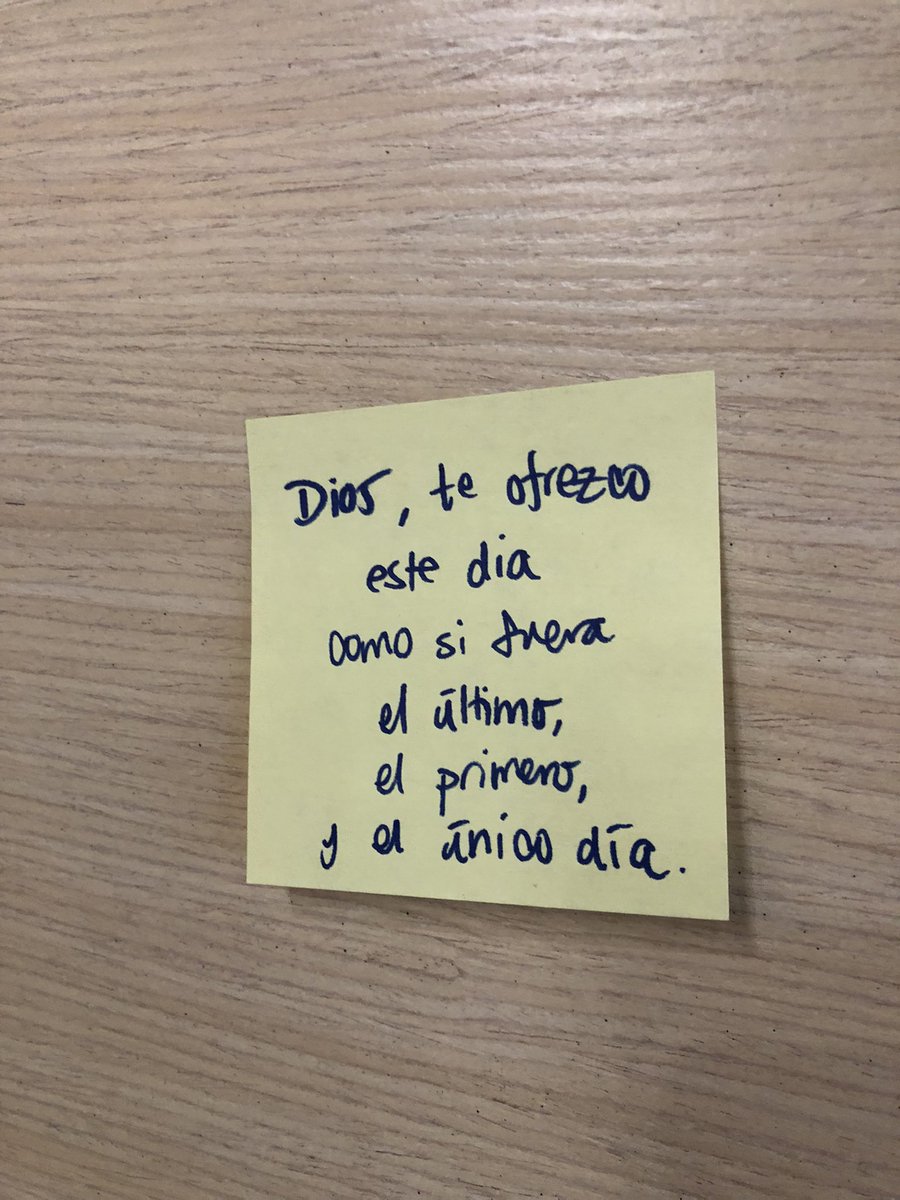 Dios, te ofrezco
este dia
como si fuera
el último,
el primero,
y el único día.